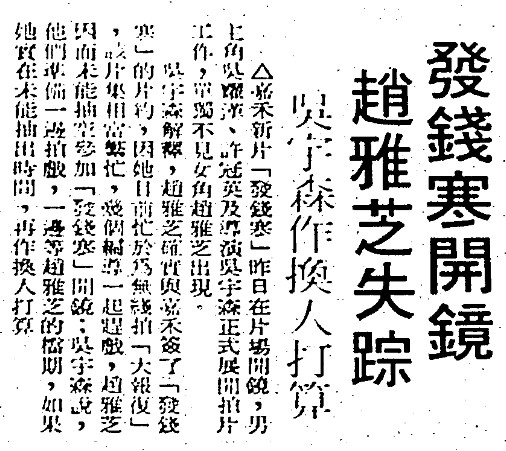 發錢寒開鏡
趙雅芝失踪
吳宇森作換人打算
△嘉禾新片「發錢寒」昨日在片場開鏡，男
主角吳耀漢、許冠英及導演吳宇森正式展開拍片
工作，單獨不見女角趙雅芝出現。
吳宇森解釋，趙雅芝確實與嘉禾簽了「發錢
寒」的片約，因她目前忙於為無綫拍「大報復」
，該片集相當繁忙，幾個編導一起趕戲，趙雅芝
因而未能抽空參加「發錢寒」開鏡；吳宇森說，
他們準備一邊拍戲，一邊等趙雅芝的檔期，如果
她實在未能抽出時間，再作換人打算